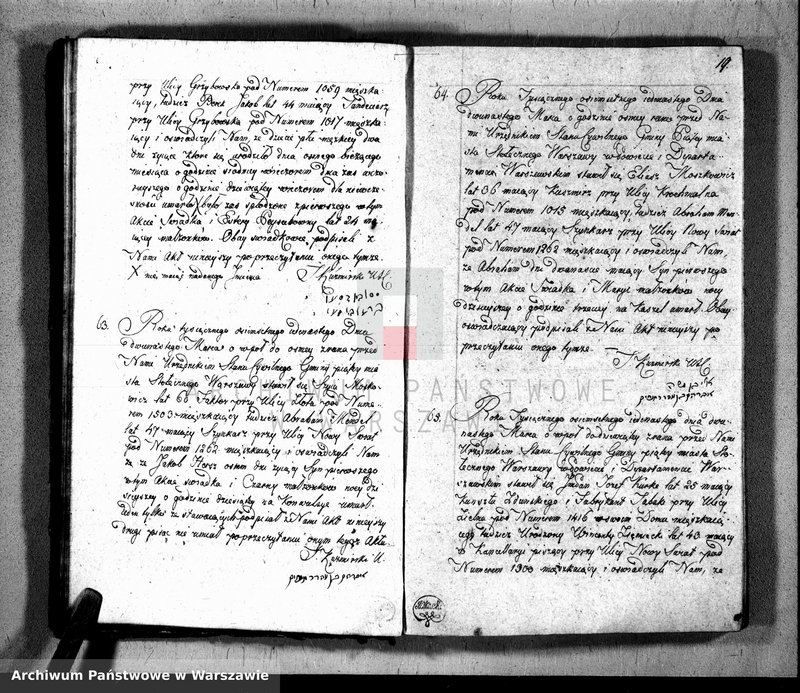 przy Ulicy Grzybowska pod Numerem 1059 mieszka-
iący, tudzież Berek Jakob lat 44 maiący Tandeciarz
przy Ulicy Grzybowska pod Numerem 1017 mieszka-
iący i oswiadczyli Nam, że dziecie płci męskiey dwa
dni żyiące które się urodziło dnia osmego bieżącego
miesiąca o godzinie siodmey wieczorem dnia zas
o godzinie dziewiątey wieczorem dla
umarło, było zas spłodzone z pierwszego w tym
Akcie Swiadka i Estery lat 24 ma-
iącey małżonków. Obay swiadkowie podpisali z
Nami Akt ninieyszy po przeczytaniu onegoż tymże.
X nie maiąc nadanego Imienia
63. Roku tysiącznego osimsetnego iedenastego Dnia
dwunastego Marca o wpoł do osmey zrana przed
Nami Urzędnikiem Stanu Cywilnego Gminy piątey mia-
sta Stołecznego Warszawy stawił się Mosko-
wicz lat 60 Faktor przy Ulicy Złota pod Nume-
rem 1503 mieszkaiący tudzież Abraham Mendel
lat 47 maiący Szynkarz przy Ulicy Nowy Swiat
pod Numerem 1262 mieszkaiący i oswiadczyli Nam
że Jakob Herz osim dni żyiący Syn pierwszego
w tym Akcie swiadka i Czarny małżonków nocy dzi-
sieyszey o godzinie dziesiątey na Konwulsye umarł.
tylko z stawaiących podpisał z Nami Akt ninieyszy
drugi pisać nie umiał po przeczytaniu onym tegoż Aktu.
19
64. Roku Tysiącznego osimsetnego iedenastego Dnia
dwunastego Marca o godzinie osmey rano przed Na-
mi Urzędnikiem Stanu Cywilnego Gminy Piątey mia-
sta Stołecznego Warszawy w Powiecie i Departa-
mencie Warszawskim stawił się Moszkowicz
lat 36 maiący przy Ulicy Krochmalna
pod Numerem 1015 mieszkaiący, tudzież Abraham Men-
del lat 47 maiący Szynkarz przy Ulicy Nowy Swiat
pod Numerem 1262 mieszkaiący i oswiadczyli Nam,
że Abraham dni dwanascie maiący Syn pierwszego
w tym Akcie Swiadka i Maryi małżonków nocy
dzisieyszey o godzinie trzeciey na Kaszel umarł. Obay
oswiadczaiący podpisali z Nami Akt ninieyszy po
przeczytaniu onego tymże.
65. Roku Tysiącznego osimsetnego iedenastego dnia dwu-
nastego Marca o wpoł do dziewiątey zrana przed Nami
Urzędnikiem Stanu Cywilnego Gminy piątey miasta Sto-
łecznego Warszawy w Powiecie i Departamencie War-
szawskim stawił się Jozef Kurke lat 25 maiący
Kunsztu Zdunskiego i Fabrykant Fabik przy Ulicy
Zielna pod Numerem 1416 w swoim Domu mieszkaią-
cy, tudzież Urodzony Wincenty lat 43 maiący
w Kancellaryi piszący przy Ulicy Nowy Swiat pod
Numerem 1300 mieszkaiący i oswiadczyli Nam, że
ARCHIWUM PAŃSTWOWE
W WARSZAWIE
Archiwum Państwowe w Warszawie